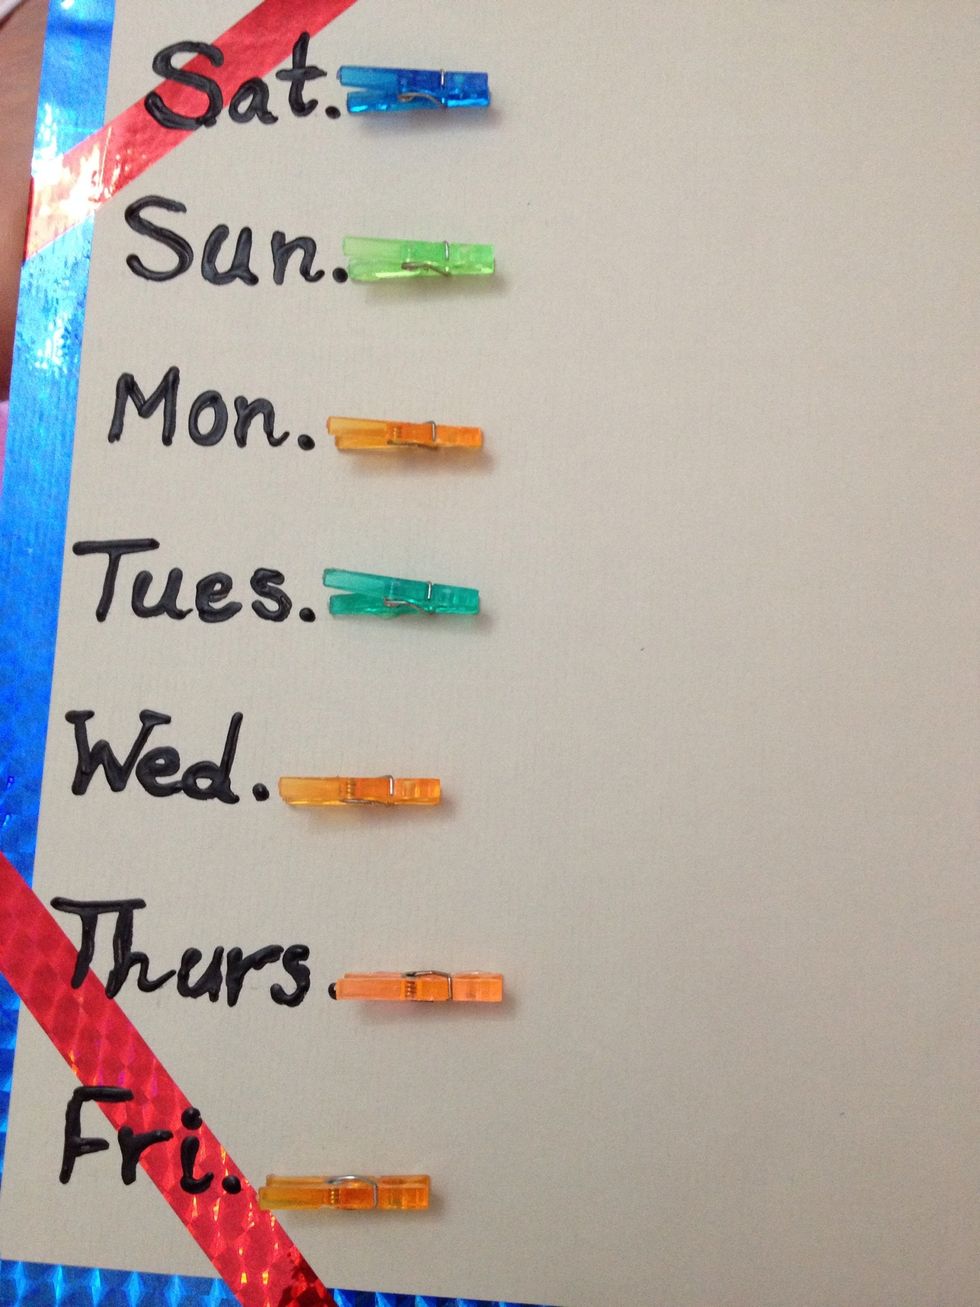 Sat.
Sun.
Mon.
Tues.
Wed.
Thurs.
Fri.